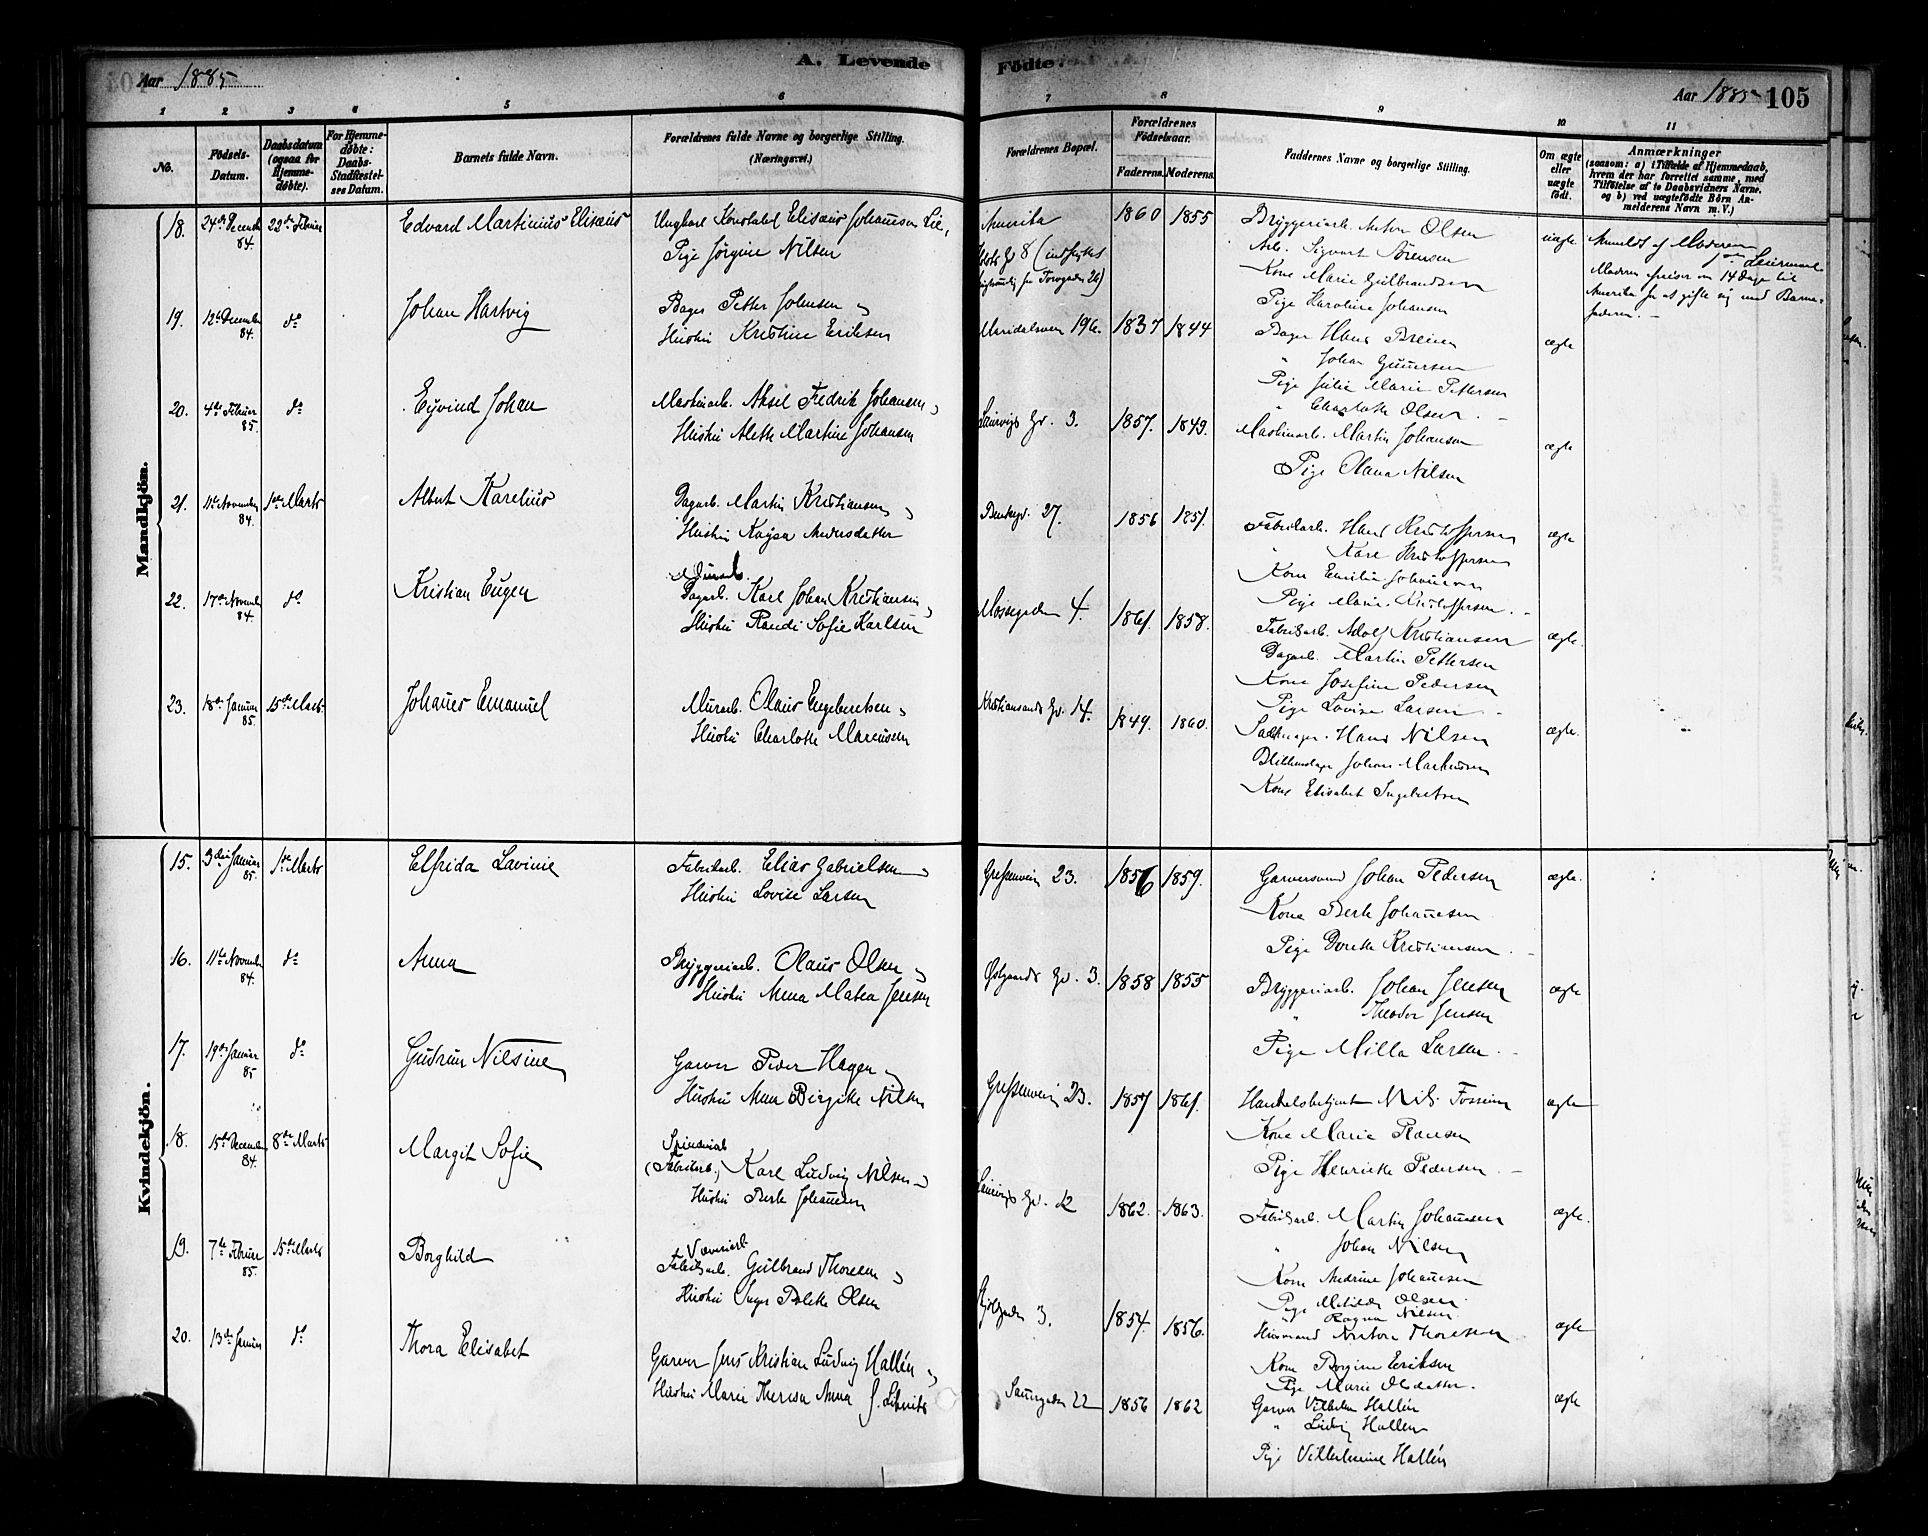 Aar 1885
A. Levende
Fødte.
Aar 1885 105
1 2 3 4 5 6 7 8 9 10 11
No.
Fødsels-Datum.
Daabsdatum (ogsaa for Hjemmedøbte).
For Hjemmedøbte: Daabs-Stadfæstelses Datum.
Barnets fulde Navn.
Forældrenes fulde Navne og borgerlige Stilling. (Næringsvei.)
Forældrenes Bopæl.
Forældrenes Fødselsaar.
Faderens. Moderens.
Faddernes Navne og borgerlige Stilling.
Om ægte eller uægte født.
Anmærkninger
(saasom: a) i Tilfælde af Hjemmedaab, hvem der har forrettet samme, med Tilføielse af to Daabsvidners Navne. og b) ved uægtefødte Børn Anmelderens Navn m. V.)
Mandkjön.
18. 24de Decemb 84. 22de Februar Edvard Martinius Elisæus Ungkarl Konstabel Elisæus Johansen Lie, Amerika 1860 1855 Bryggeriarb. Anton Olsen uægte Anmeldt af Moderen
Pige Jørgine Nilsen Arb. Sigvart Sørensen
Kone Marie Gulbrandsen Moderen reiser om 14 dage til
Pige Karoline Johansen Amerika for at gifte sig med Barnefaderen.
19. 12te December 84. do Johan Hartvig Bager Petter Johnsen, Maridalsveien 196. 1837 1844 Bager Hans Breien ægte
Hustru Kristine Eriksen " Johan Gunnersen
Pige Julie Marie Pettersen
" Charlotte Olsen.
20. 4de Februar 85. do Eyvind Johan Maskinarb. Aksel Fredrik Johansen, Laurvigs Gd. 3. 1857. 1849. Maskinarb. Martin Johansen ægte
Hustru Alette Martine Johansen Pige Olava Nilsen
21. 11te November 84. 1ste Marts Albert Karelius Dagarb. Martin Kristiansen, 27. 1856 1851. Fabrikarb. Hans Kristoffersen ægte
Hustru Kaysa Andersdatter " Karl Kristoffersen
Kone Emilie Johansen
Pige Marie Kristoffersen.
22. 17de Novemb 84. do Kristian Eugen Dagarb. Karl Johan Kristiansen, Mossegaden 4. 1861. 1858. Fabrikarb. Adolf Kristiansen ægte.
Hustru Randi Sofie Karlsen Dagarb. Martin Pettersen
Kone Josefine Pedersen
Pige Lovise Larsen
23. 18de Januar 85. 15de Marts. Johannes Emanuel Murarb. Olaus Engebretsen, Kristiansands Gd. 14. 1849. 1860. Hans Nilsen ægte.
Hustru Charlotte Marcussen Johan Markussen
Kone Elisabet Ingebretsen
Kvindekjön.
15. 3die Januar 85. 1ste Marts Elfrida Lavinie Fabrikarb. Elias Gabrielsen, Grefsenveien 23. 1856 1859. Garversvend Johan Pedersen ægte.
Hustru Lovise Larsen Kone Berte Johannesen
Pige Dorthe Kristiansen.
16. 11te November 84. do Anna Bryggeriarb. Olaus Olsen, Østgaards Gd. 3. 1858 1855 Bryggeriarb. Johan Jensen ægte
Hustru Anna Matea Jensen " Theodor Jensen
Pige Milla Larsen.
17. 19de Januar 85 do Gudrun Nilsine Garver Peder Hagen, Grefsenveien 23. 1857 1861. Handelsbetjent Nils Fossum ægte
Hustru Anna Birgitte Nilsen Kone Maria Hansen
Pige Henriette Pedersen.
18. 15de Decemb 84. 8de Marts Margit Sofie (Fabrikarb.) Karl Ludvig Nilsen, Laurvigs Gd. 12 1862. 1863. Fabrikarb. Martin Johannesen ægte.
Hustru Berte Johansen " Johan Nilsen
Kone Andrine Johannesen
Pige Matilde Olsen
" Ragna Nilsen
19. 7de Februar 85. 15de Marts Borghild Væveriarb. Fabrikarb. Gulbrand Thoresen, 3. 1854. 1856. Husmand Anton Thoresen ægte
Hustru Inger Bolette Olsen Kone Borgine Eriksen
Pige Marie Olsdatter.
20. 13de Januar do Thora Elisabet Garver Jens Kristian Ludvig Hallén, 22 1856 1862 Garver Vilhelm Hallén ægte
Hustru Marie Theresa Anna " Ludvig Hallén
Pige Vilhelmine Hallén